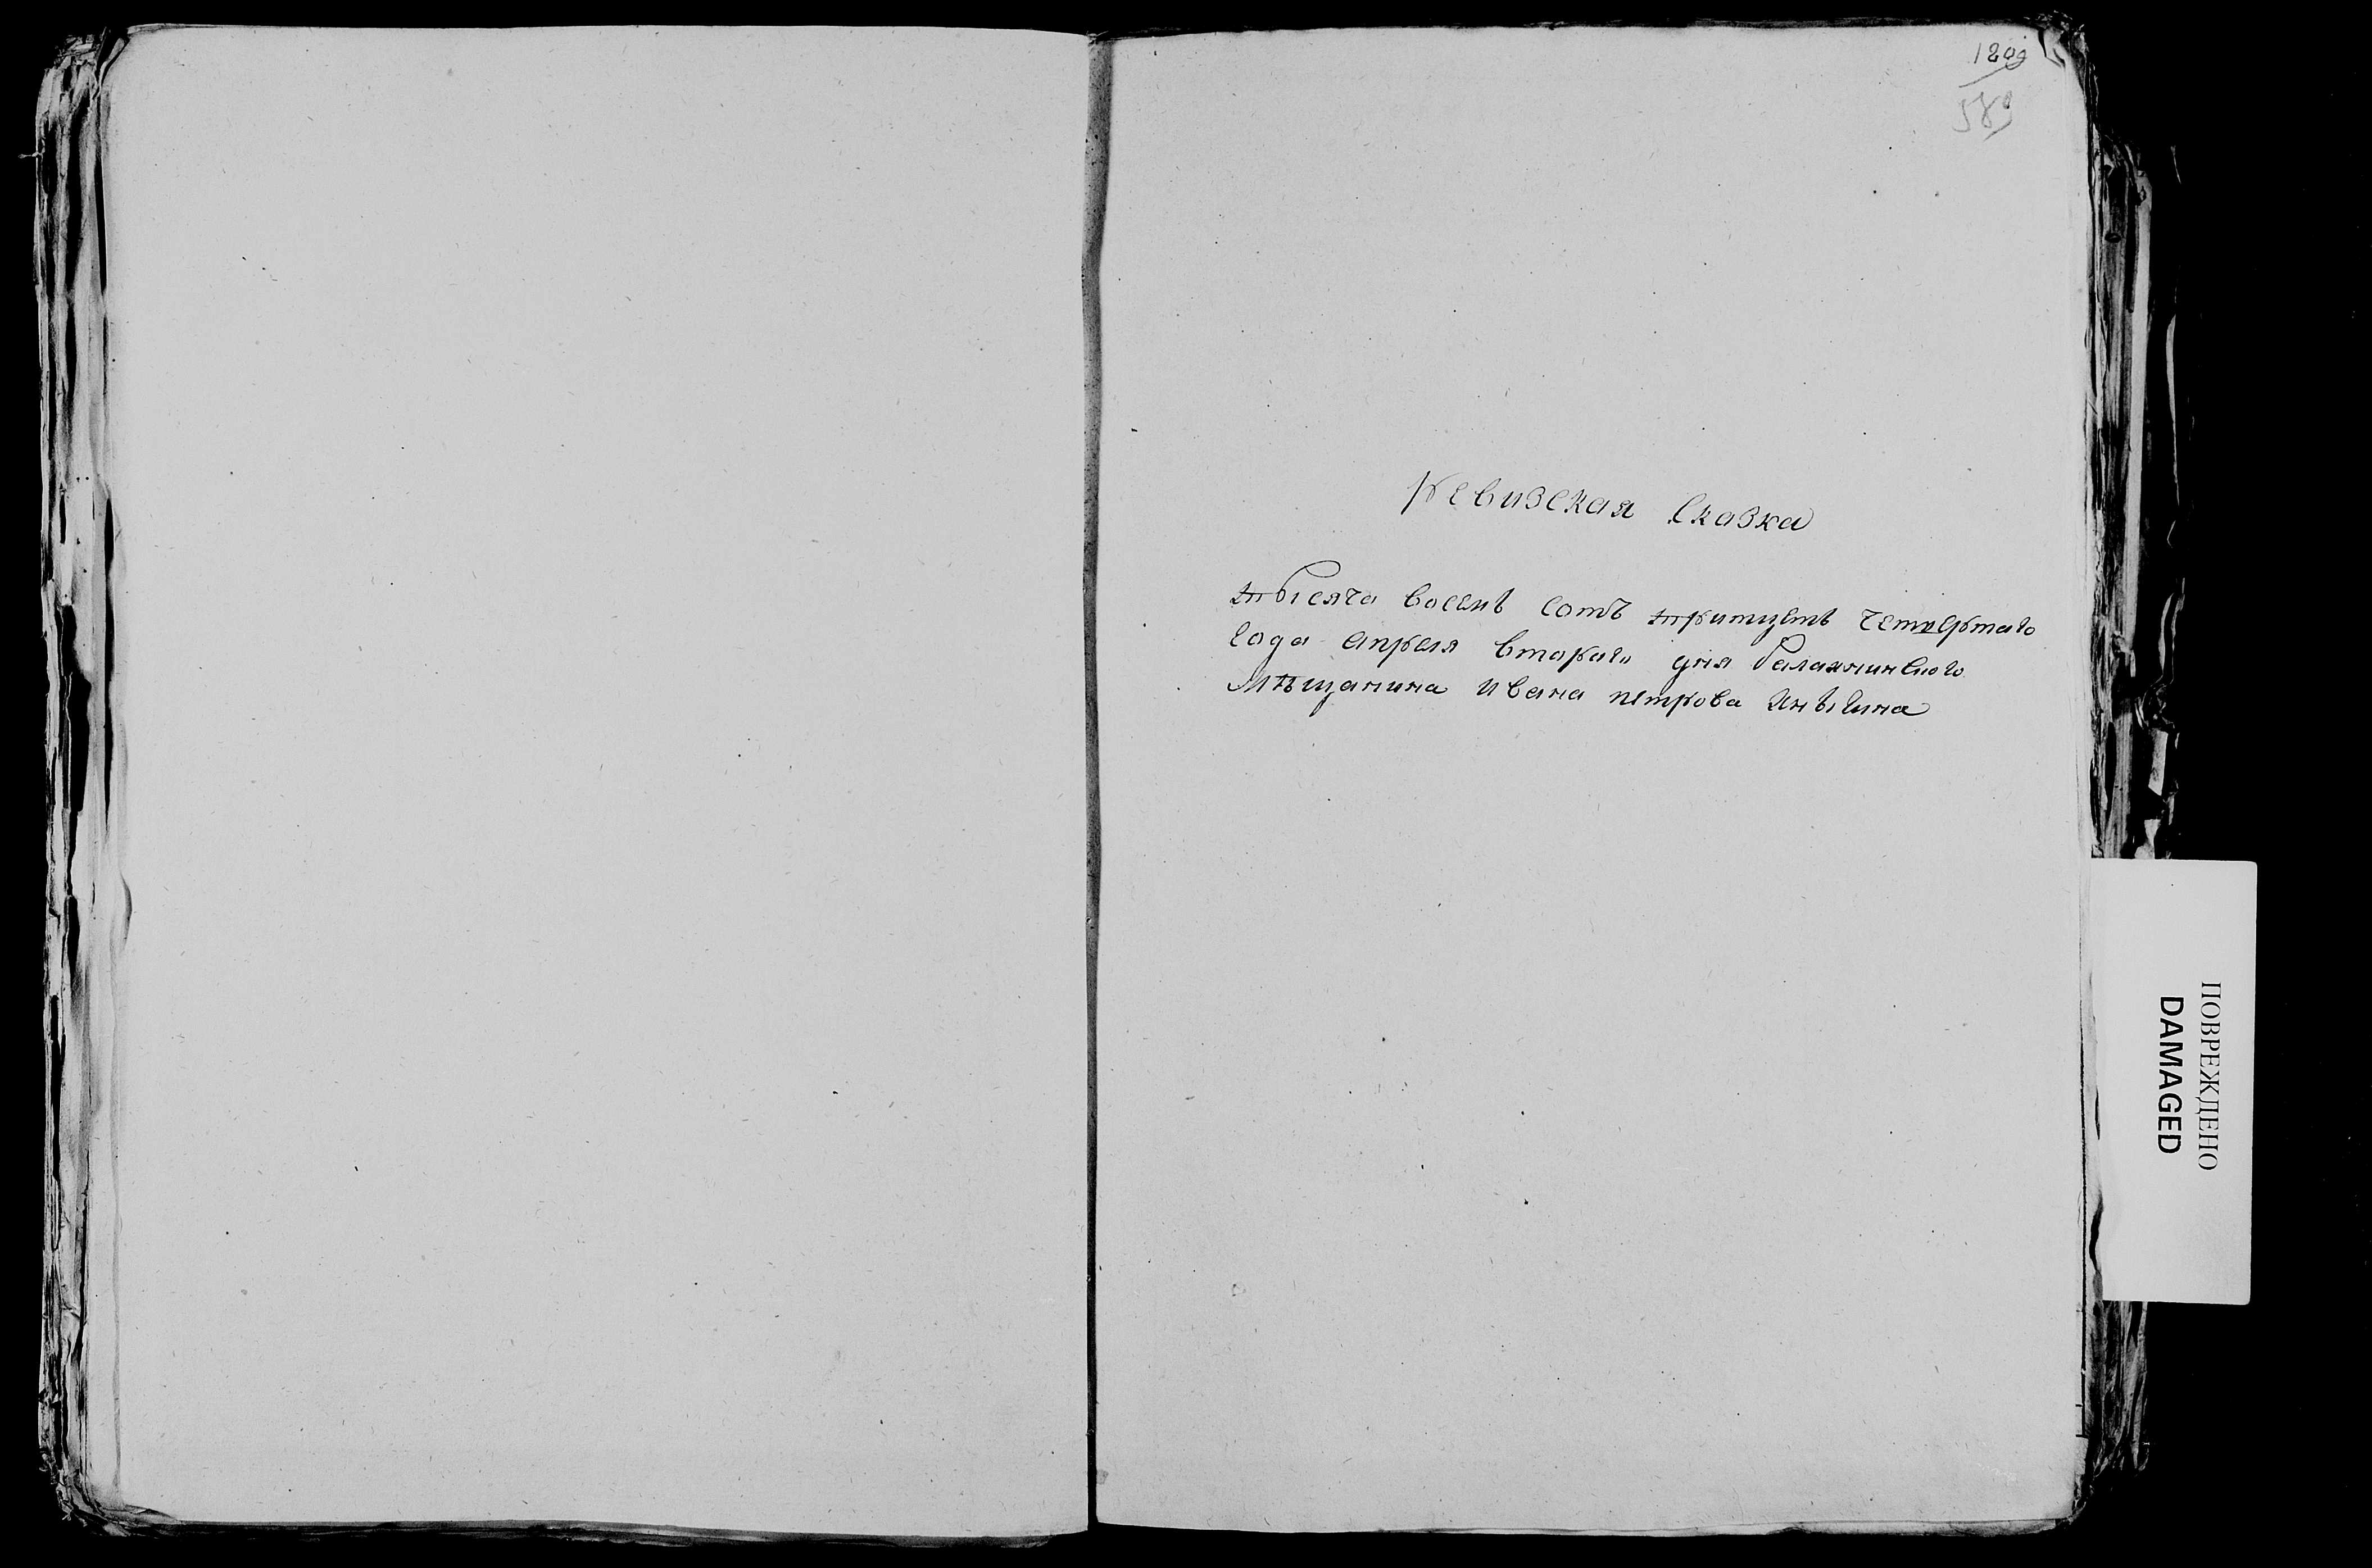 1209
589
Ревизская Сказка
тысяча восемь сотъ тритцеть четвертаго
года апреля втораго дня балахнинского
Мѣщанина ивана петрова
ПОВРЕЖДЕНО
DAMAGED